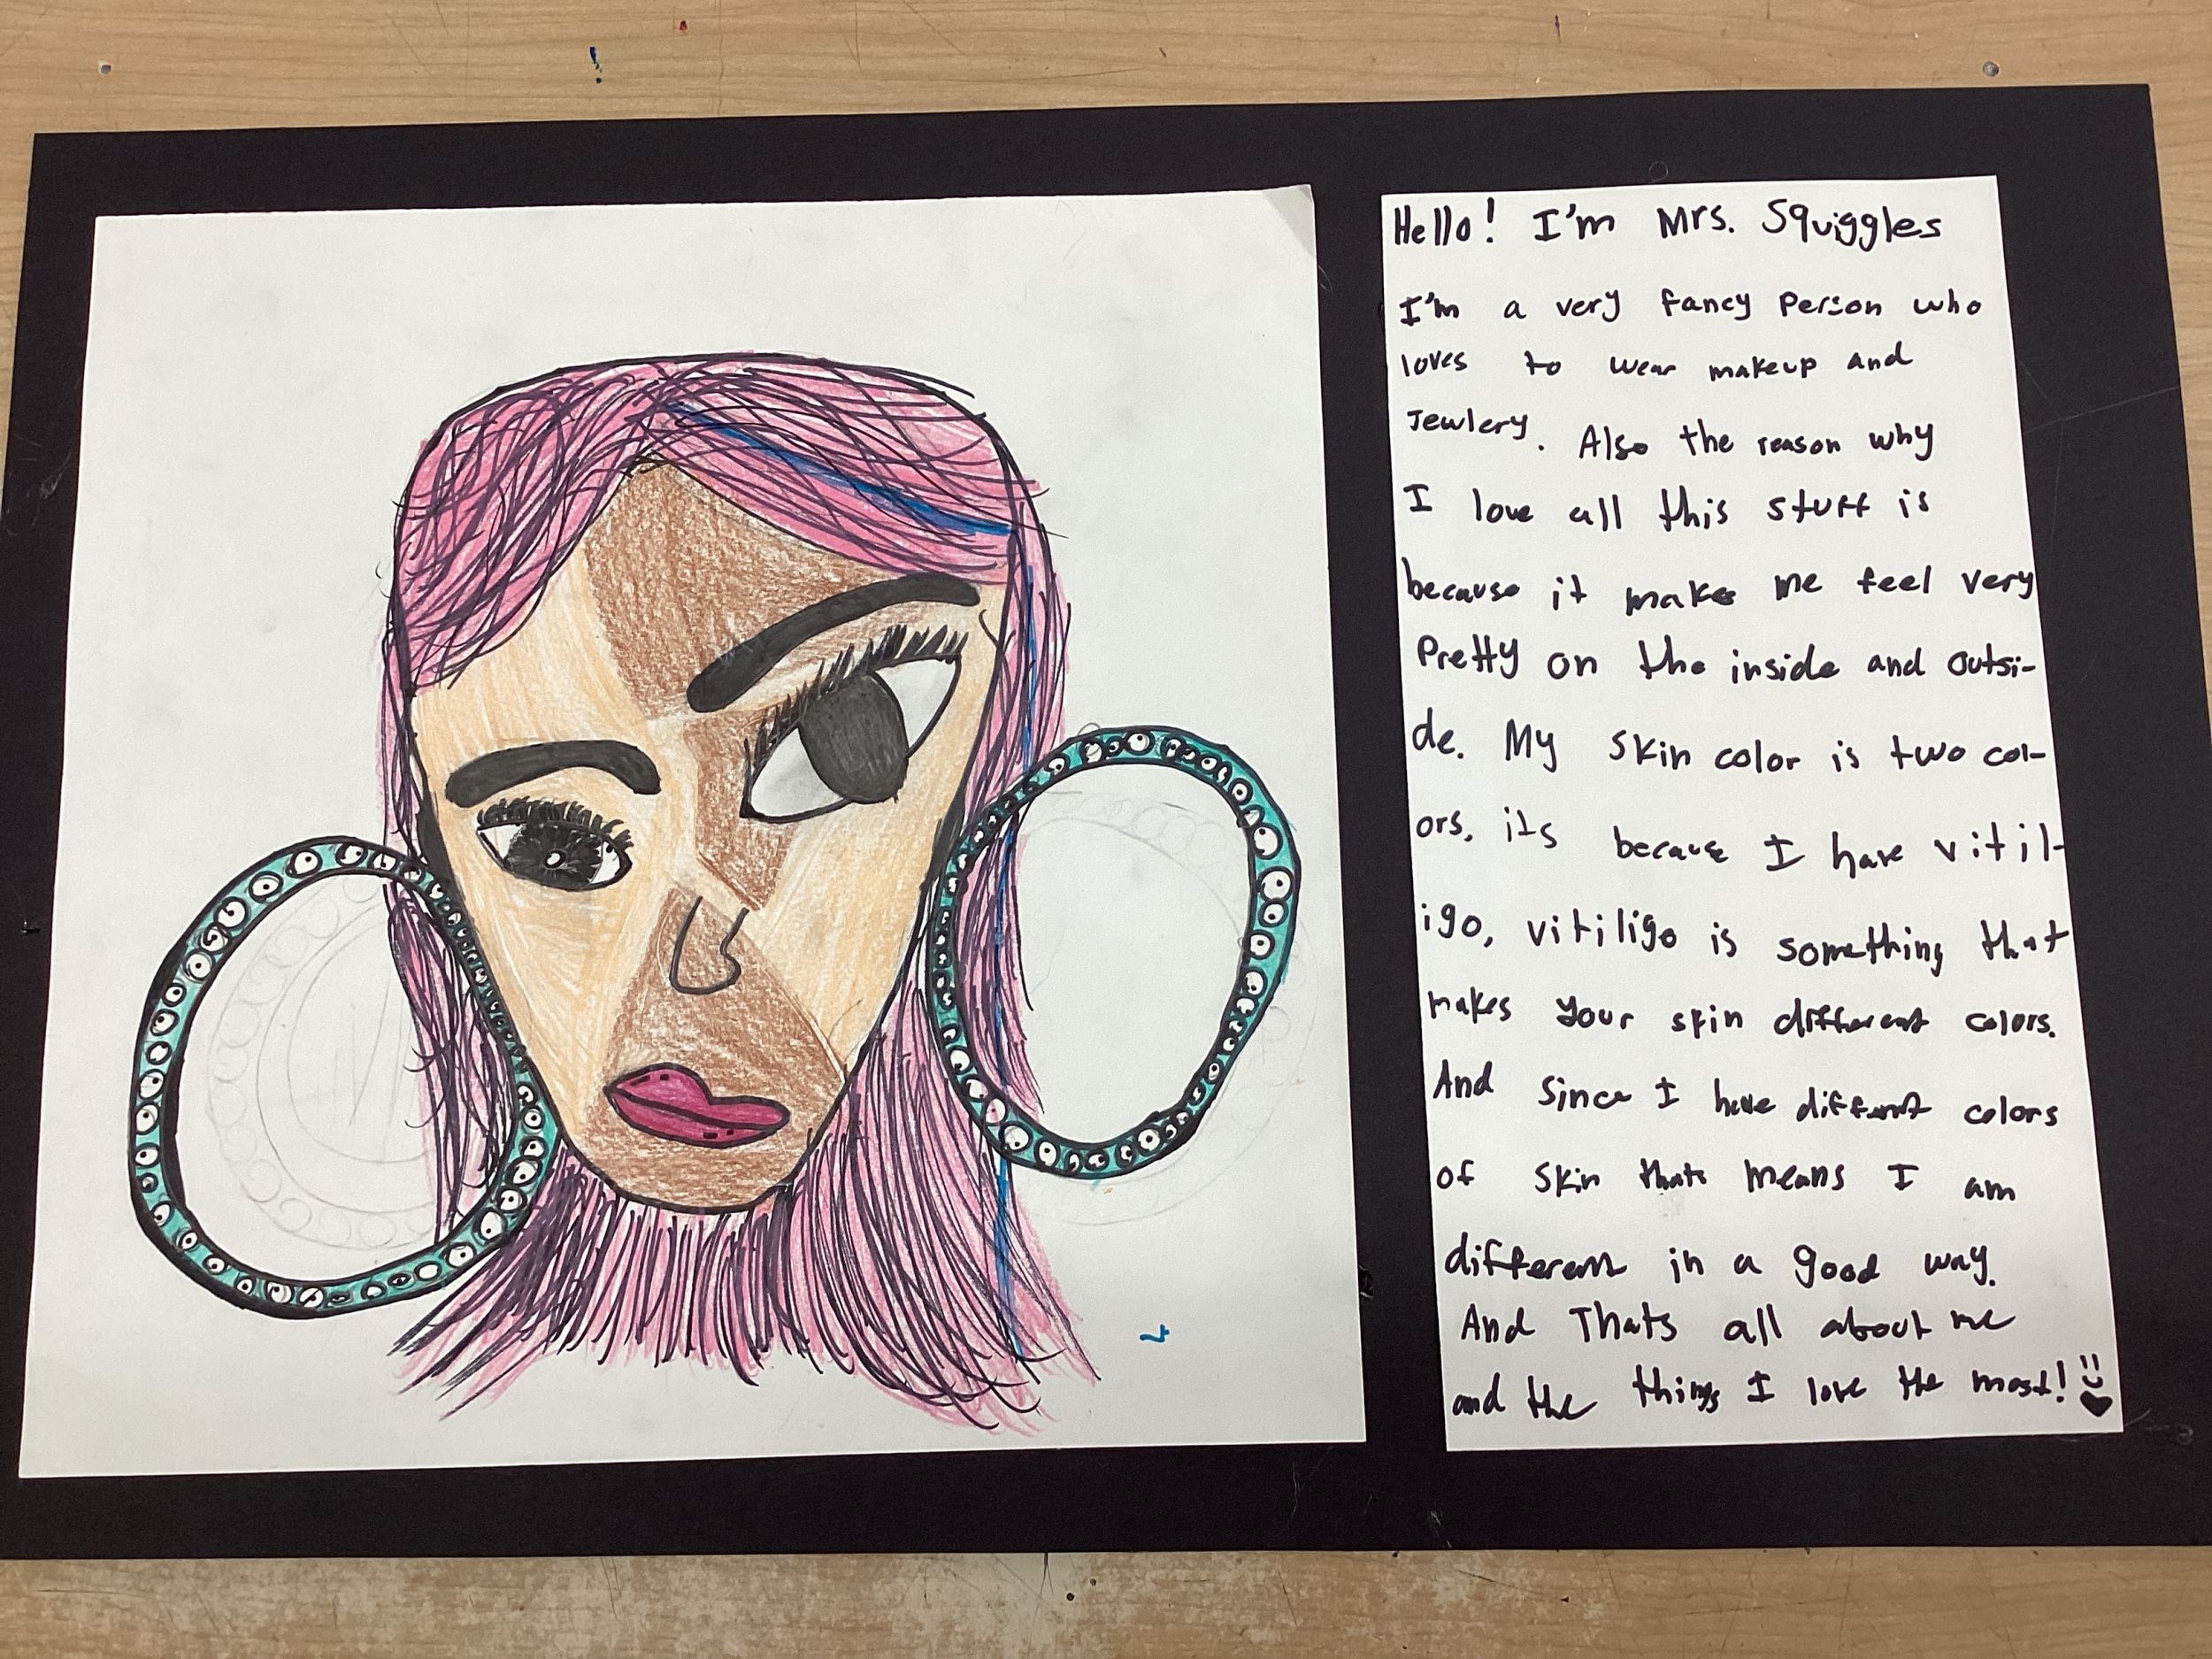 Hello! I'm Mrs. Squiggles
I'm a very fancy Person who
loves to wear makeup and
Jewlery. Also the reason why
I love all this stuff is
because it makes me feel very
Pretty on the inside and outsi-
de. My skin color is two col-
ors, its because I have vitil-
igo, vitiligo is something that
makes your skin different colors.
And since I have different colors
of skin thats means I am
different in a good way.
And Thats all about me
and the things I love the most!